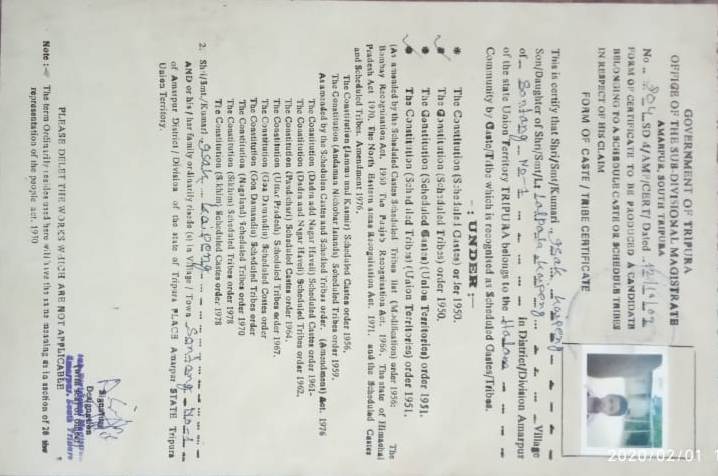 GOVERNMENT OF TRIPURA
OFFICE OF THE SUB-DIVISIONAL MAGISTRATE
AMARPUR, SOUTH TRIPURA
No SD 4/AMP/CERT/ Dated
FORM OF CERTIFICATE TO BE PRODUCED A CANDIDATE
BELONGING TO A SCHEDULE CASTE OR SCHEDULE TRIBES
IN RESPECT OF HIS CLAIM
FORM OF CASTE / TRIBE CERTIFICATE
This is certify that Shri/Smt/Kumari Kaipeng
Son/Daughter of Shri/Smt/Lt Kaipeng Village
of No-1 in District/Division Amarpur
of the state Union Territory TRIPURA belongs to the Halam
Community by Caste/Tribe which is recognised as Scheduled Castes/Tribes.
-: UNDER :-
* The Constitution (Scheduled Castes) order 1950.
* The Constitution (Scheduled Tribes) order 1950.
* The Constitution (Scheduled Castes) (Union Territories) order 1951.
* The Constitution (Scheduled Tribes) (Union Territories) order 1951.
(As amended by the Scheduled Castes Scheduled Tribes list (Modification) order 1956; The
Bombay Recognisation Act, 1960 The Punjab Recognisation Act, 1966, The state of Himachal
Pradesh Act 1970, The North Eastern areas Recognisation Act, 1971. and the Scheduled Castes
and Scheduled Tribes. Amendment 1976.
The Constitution (Jammu and Kasmir) Scheduled Castes order 1956,
The Constitution (Andaman Nichobar Islands) Scheduled Tribes order 1959
As amended by the Scheduled Castes and Scheduled Tribes order. (Amendment) Act. 1976
The Constitution (Dadra add Nagar Haveli) Scheduled Castes order 1961-
The Constitution (Dadra and Nagar Haveli) Scheduled Tribes order 1962,
The Constitution (Pandichari) Scheduled Castes order 1964,
The Constitution (Uttar Pradesh) Scheduled Tribes order 1967.
The Constitution (Goa Damandiu) Scheduled Castes order
The Constitution (Goa Damandiu) Scheduled Tribes order
The Constitution (Nagaland) Scheduled Tribes order 1970
The Constitution (Sikkim) Scheduled Tribes order 1978
The Constitution (Sikkim) Scheduled Castes order 1978
2. Shri/Smt/Kumari Kaipeng
AND or his / her family ordinarily riside (s) in Village / Town No-1
of Amarpur District / Division of the state of Tripura PLACE Amarpur STATE Tripura
Union Territory.
Signature
Designation
Amarpur, South Tripura
PLEASE DELET THE WORKS WHICH ARE NOT APPLICABLE
Note :- The term Ordinarily resides used here will have the same meaning as in section of 20 the
representation of the people act, 1950
2020/02/01